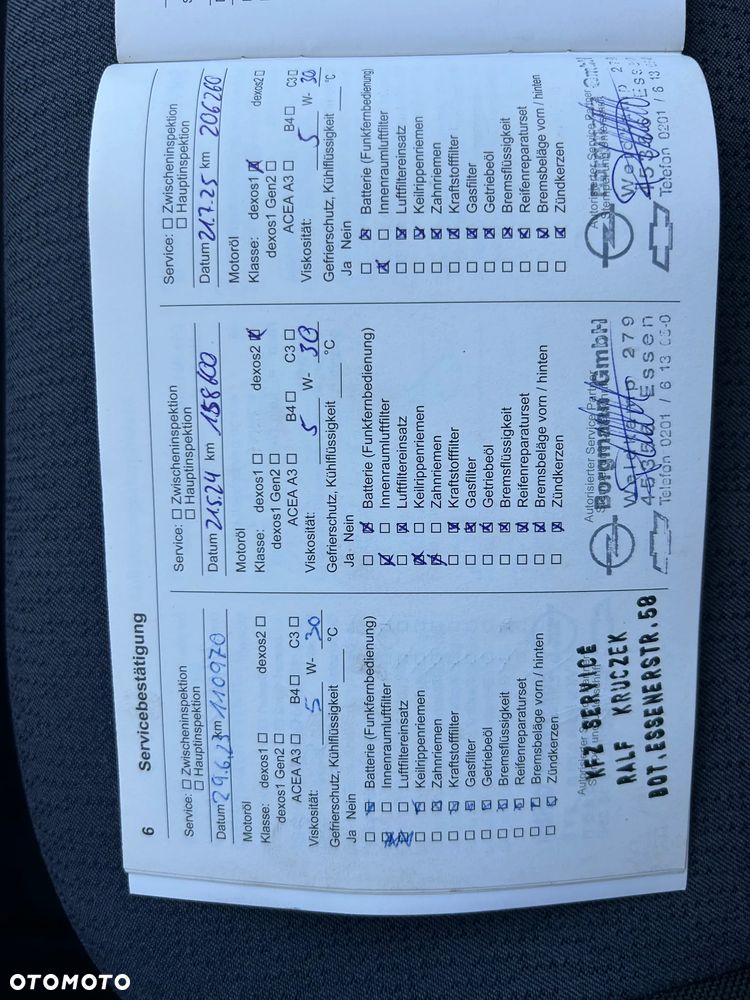 6
Servicebestätigung
Service: Zwischeninspektion
Hauptinspektion
Datum 29.6.23 km 110970
Motoröl
Klasse: dexos1 dexos2
dexos1 Gen2
ACEA A3 B4 C3
Viskosität: 5 W- 30
Gefrierschutz, Kühlflüssigkeit °C
Ja Nein
Batterie (Funkfernbedienung)
Innenraumluftfilter
Luftfiltereinsatz
Keilrippenriemen
Zahnriemen
Kraftstofffilter
Gasfilter
Getriebeöl
Bremsflüssigkeit
Reifenreparaturset
Bremsbeläge vorn / hinten
Zündkerzen
KFZ SERVICE
RALF KRUCZEK
BOT.ESSENERSTR.58
Service: Zwischeninspektion
Hauptinspektion
Datum 21.5.24 km 158600
Motoröl
Klasse: dexos1 dexos2
dexos1 Gen2
ACEA A3 B4 C3
Viskosität: 5 W- 30
Gefrierschutz, Kühlflüssigkeit °C
Ja Nein
Batterie (Funkfernbedienung)
Innenraumluftfilter
Luftfiltereinsatz
Keilrippenriemen
Zahnriemen
Kraftstofffilter
Gasfilter
Getriebeöl
Bremsflüssigkeit
Reifenreparaturset
Bremsbeläge vorn / hinten
Zündkerzen
Autorisierter Service Partner
Borgmann GmbH
279
Essen
Telefon 0201 / 6 13
Service: Zwischeninspektion
Hauptinspektion
Datum 21.7.25 km 206260
Motoröl
Klasse: dexos1 dexos2
dexos1 Gen2
ACEA A3 B4 C3
Viskosität: 5 W- 30
Gefrierschutz, Kühlflüssigkeit °C
Ja Nein
Batterie (Funkfernbedienung)
Innenraumluftfilter
Luftfiltereinsatz
Keilrippenriemen
Zahnriemen
Kraftstofffilter
Gasfilter
Getriebeöl
Bremsflüssigkeit
Reifenreparaturset
Bremsbeläge vorn / hinten
Zündkerzen
Autorisierter Service Partner
GmbH
Telefon 0201 / 6 13
OTOMOTO